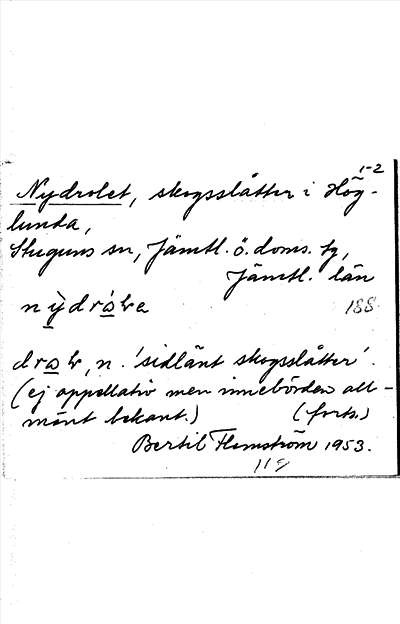 1-2
Nydrolet, skogsslåtter i Hög-
lunda,
Stuguns sn, Jämtl. ö. doms. tg,
Jämtl. län
188
dra, n. 'sidlänt skogsslåtter'.
(ej appellativ men innebörden all-
mänt bekant.) (forts.)
Bertil Flemström 1953.